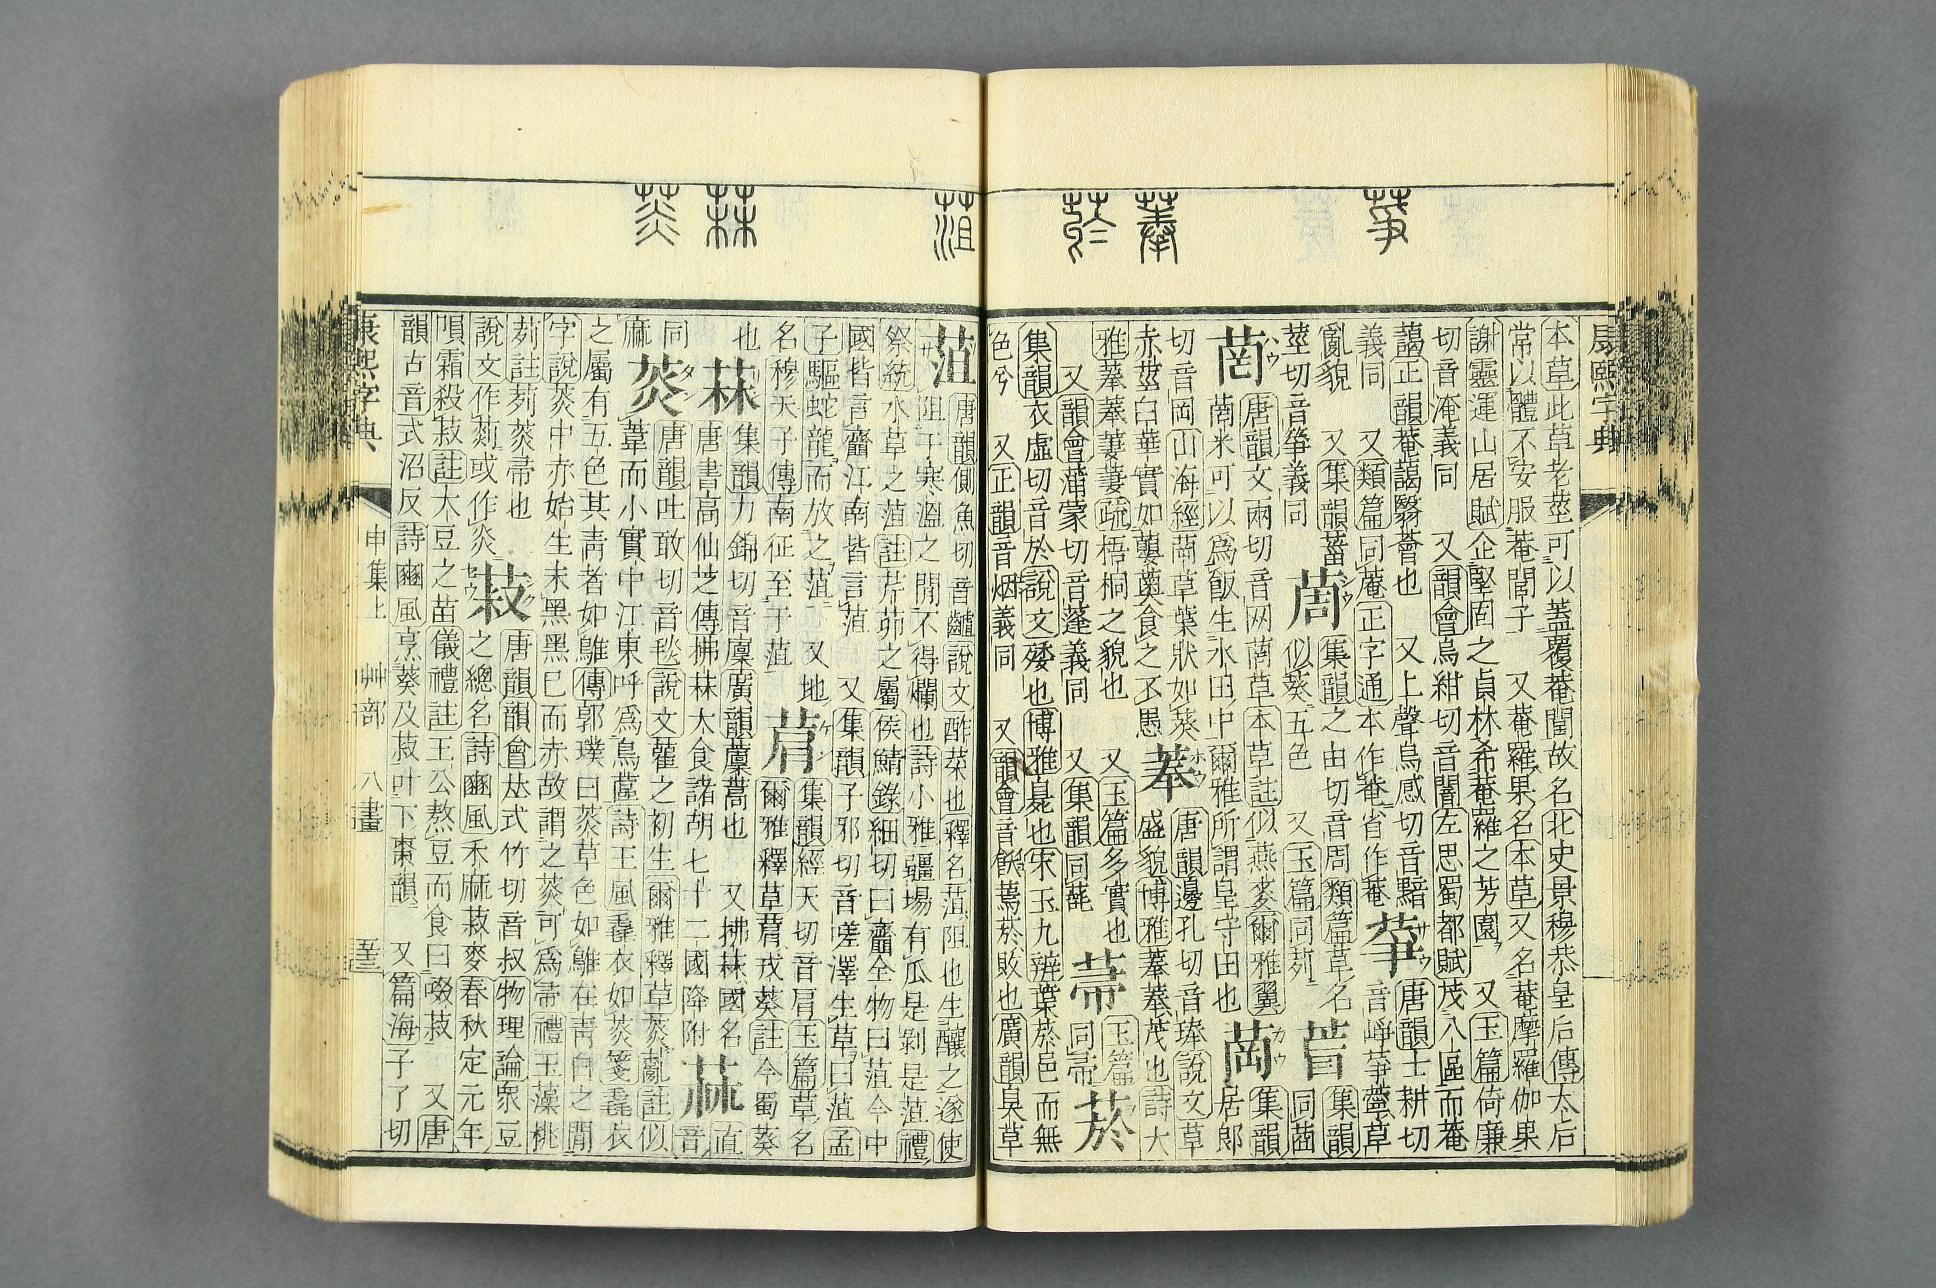 康熙字典
本草此草老莖可以蓋覆菴閭故名北史景穆恭皇后傳太后
常以體不安服菴閭子　又菴羅果名本草又名菴摩羅伽果
謝靈運山居賦企堅固之貞林希菴羅之芳園　又玉篇倚廉
切音淹義同　又韻會烏紺切音闇左思蜀都賦茂八區而菴
藹正韻菴藹翳薈也　又上聲烏感切音黯
義同　又類篇同䓿正字通本作菴省作菴
萕
唐韻士耕切
音崢萕薴草
亂貌　又集韻甾
莖切音箏義同
菷
集韻之由切音周類篇草名
似葵五色　又玉篇同茒
菬
集韻
同菌
䓣
唐韻文兩切音网䓣草本草註似燕麥爾雅翼
䓣米可以爲飯生水田中爾雅所謂皇守田也
䓳
集韻
居郎
切音岡山海經䓳草葉狀如葵
赤莖白華實如蘡薁食之不愚
菶
唐韻邊孔切音琫說文草
盛貌博雅菶菶茂也詩大
雅菶菶萋萋疏梧桐之貌也　又玉篇多實也
又韻會蒲蒙切音蓬義同　又集韻同芃
菷
玉篇
同帚
菸
集韻衣虛切音於說文矮也博雅臰也宋玉九辨葉菸邑而無
色兮　又正韻音烟義同　又韻會音飫蔫菸敗也廣韻臭草
菹
唐韻側魚切音齟說文酢菜也釋名菹阻也生釀之遂使
阻于寒溫之閒不得爛也詩小雅疆場有瓜是剝是菹禮
祭統水草之菹註芹茆之屬侯鯖錄細切曰齏全物曰菹今中
國皆言齏江南皆言菹　又集韻子邪切音嗟澤生草曰菹孟
子驅蛇龍而放之菹　又地
名穆天子傳南征至于菹
菺
集韻經天切音肩玉篇草名
爾雅釋草菺戎葵註今蜀葵
也
菻
集韻力錦切音廩廣韻蒿也　又拂菻國名
唐書高仙芝傳拂菻大食諸胡七十二國降附
𦯶
直
音
同
麻
菼
唐韻吐敢切音毯說文雚之初生爾雅釋草菼薍註似
葦而小實中江東呼爲烏蓲詩王風毳衣如菼箋毳衣
之屬有五色其靑者如鵻傳郭璞曰菼草色如鵻在靑白之閒
字說菼中赤始生末黑黑巳而赤故謂之菼可爲帚禮玉藻桃
茢註茢菼帚也
說文作𦵹或作炎
菽
唐韻韻會𠀤式竹切音叔物理論衆豆
之總名詩豳風禾麻菽麥春秋定元年
隕霜殺菽註大豆之苗儀禮註王公熬豆而食曰啜菽　又唐
韻古音式沼反詩豳風烹葵及菽叶下棗韻　又篇海子了切
康熙字典　申集上　艸部　八畫　至三